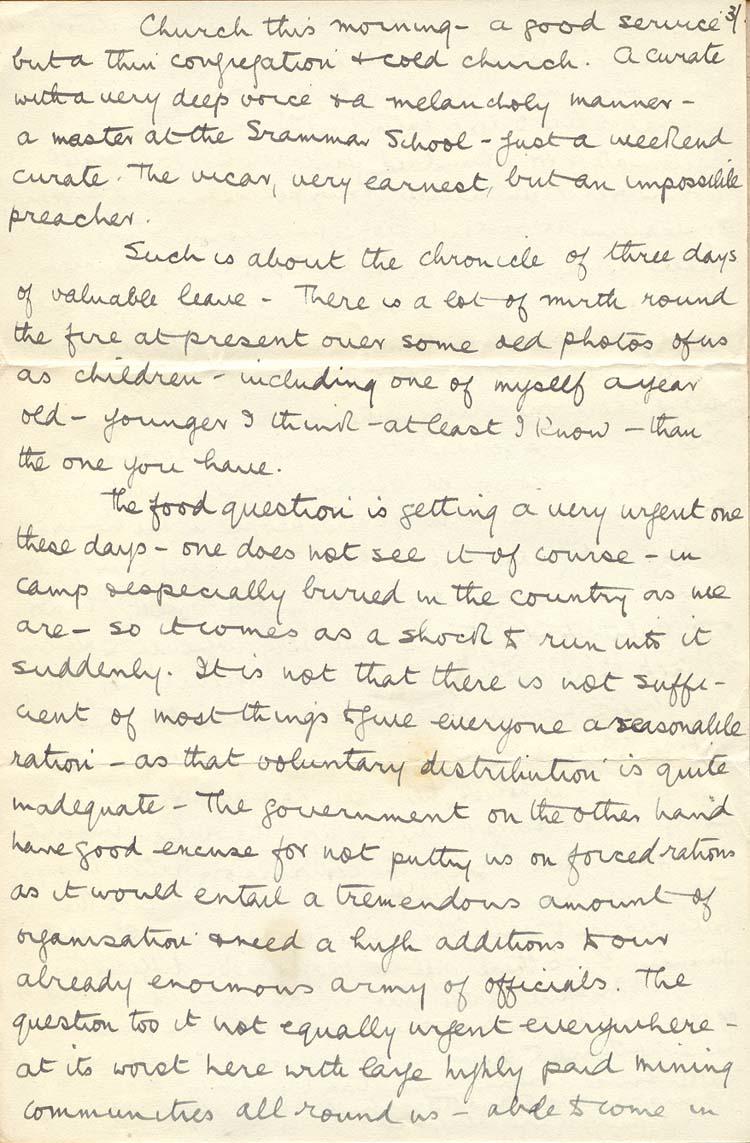 3/.
Church this morning - a good service
but a thin congregation & cold church. A curate
with a very deep voice & a melancholy manner -
a master at the Grammar School - just a weekend
curate. The vicar, very earnest, but an impossible
preacher.
Such is about the chronicle of three days
of valuable leave - There is a lot of mirth round
the fire at present over some old photos of us
as children - including one of myself a year
old - younger I think - at least I know - than
the one you have.
The food question is getting a very urgent one
these days - one does not see it of course - in
camp & especially buried in the country as we
are - so it comes as a shock to run into it
suddenly. It is not that there is not suffi-
cient of most things to give everyone a reasonable
ration - as that voluntary distribution is quite
inadequate - The government on the other hand
have good excuse for not putting us on forced rations
as it would entail a tremendous amount of
organisation & need a high additions to our
already enormous army of officials. The
question too it not equally urgent everywhere -
at its worst here with large highly paid mining
communities all round us - able to come in